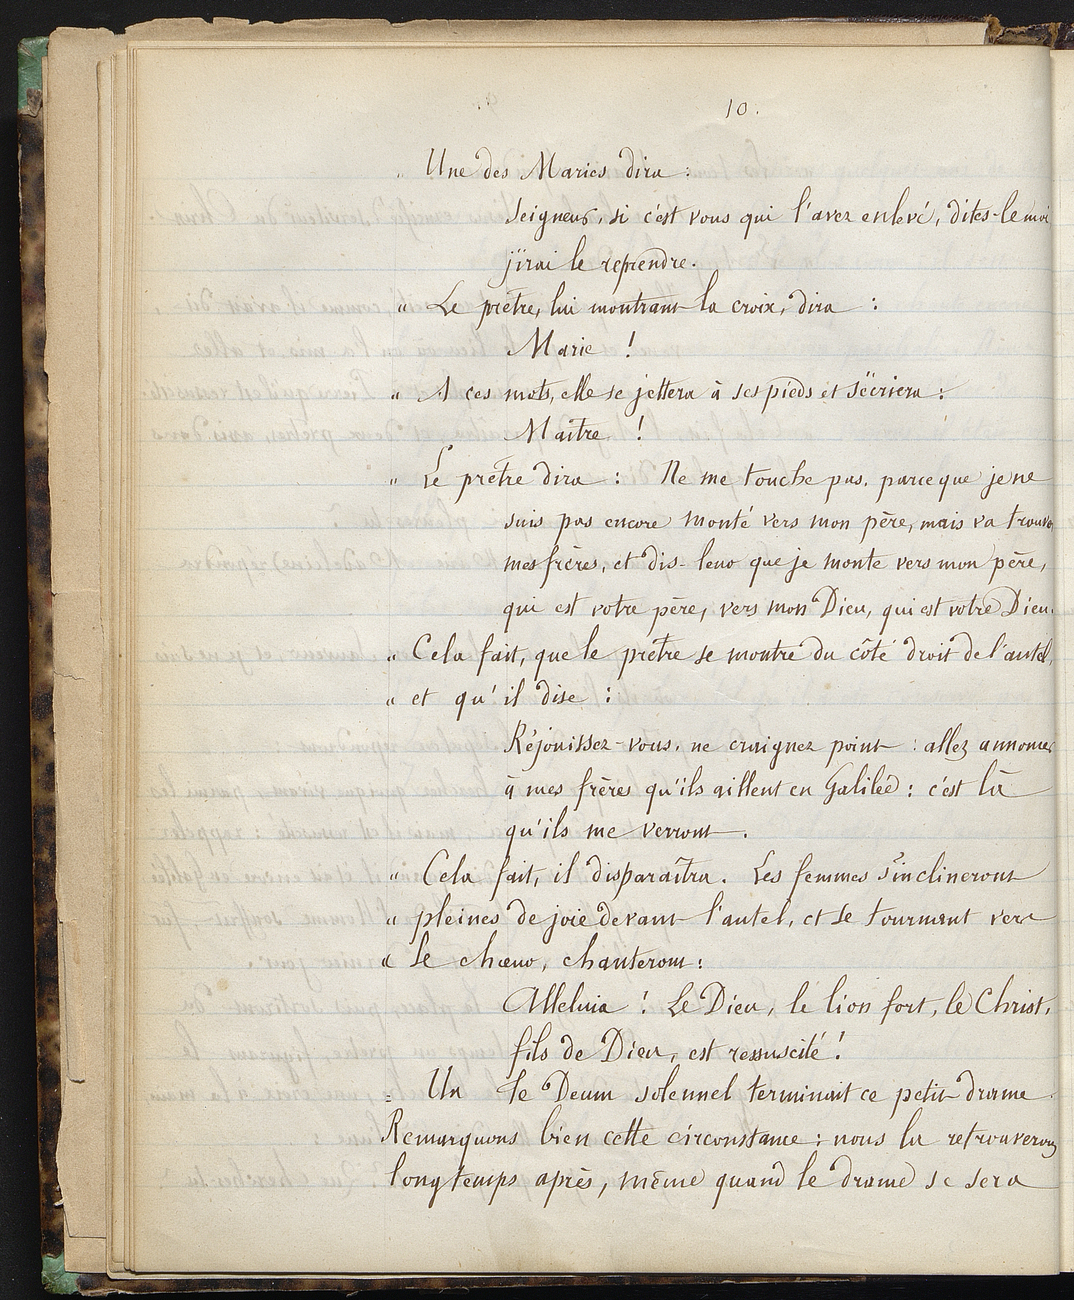 10.
„ Une des Maries dira :
Seigneur, si c'est vous qui l'avez enlevé, dites-le moi
j'irai le reprendre.
„ Le prêtre, lui montrant la croix, dira :
Marie !
„ A ces mots, elle se jettera à ses pieds et s'écriera :
Maître !
„ Le prêtre dira : Ne me touche pas, parce que je ne
suis pas encore monté vers mon père, mais va trouver
mes frères, et dis-leur que je monte vers mon père,
qui est votre père, vers mon Dieu, qui est votre Dieu.
„ Cela fait, que le prêtre se montre du côté droit de l'autel,
„ et qu'il dise :
Réjouissez-vous, ne craignez point : allez annoncer
à mes frères qu'ils aillent en Galilée : c'est là
qu'ils me verront.
„ Cela fait, il disparaîtra. Les femmes s'inclineront
„ pleines de joie devant l'autel, et se tournant vers
„ le chœur, chanteront :
Alleluia ! Le Dieu, le lion fort, le Christ,
fils de Dieu, est ressuscité !
= Un Te Deum solennel terminait ce petit drame.
Remarquons bien cette circonstance : nous la retrouverons
longtemps après, même quand le drame se sera